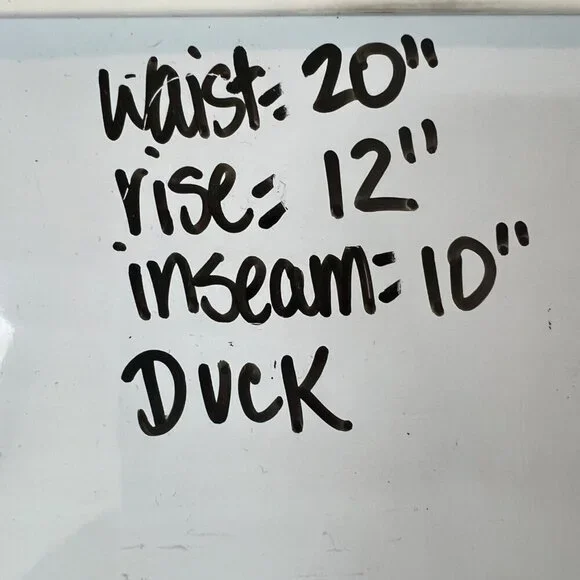 waist= 20"
rise= 12"
inseam= 10"
DUCK